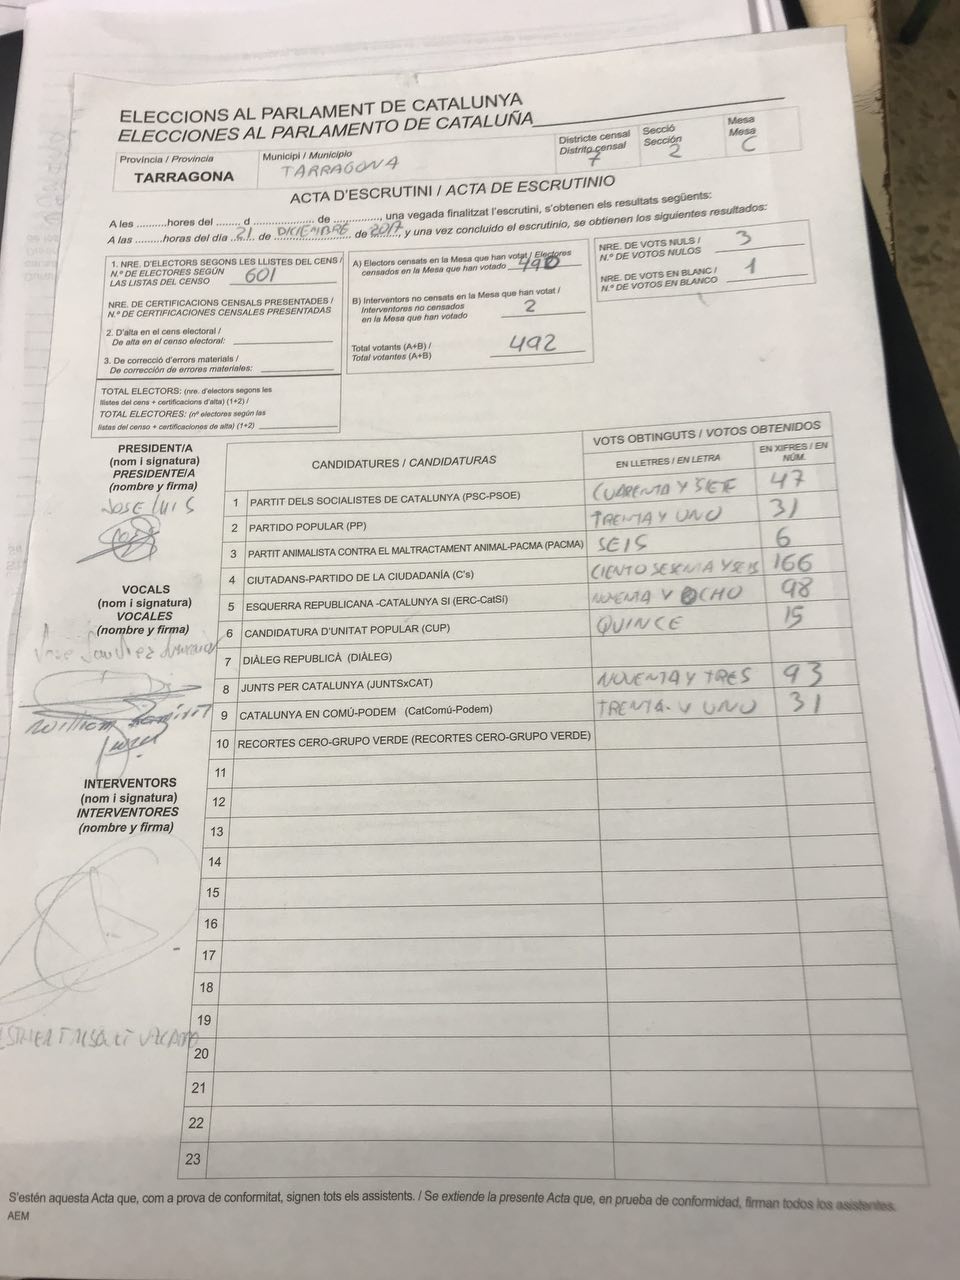 ELECCIONS AL PARLAMENT DE CATALUNYA
ELECCIONES AL PARLAMENTO DE CATALUÑA
Província / Provincia
TARRAGONA
Municipi / Municipio
TARRAGONA
Districte censal
Distrito censal
7
Secció
Sección
2
Mesa
Mesa
C
ACTA D'ESCRUTINI / ACTA DE ESCRUTINIO
A les ..........hores del ........ d ..................... de ..............., una vegada finalitzat l'escrutini, s'obtenen els resultats següents:
A las .........horas del día ..21. de DICIEMBRE de 2017, y una vez concluido el escrutinio, se obtienen los siguientes resultados:
1. NRE. D'ELECTORS SEGONS LES LLISTES DEL CENS /
N.º DE ELECTORES SEGÚN
LAS LISTAS DEL CENSO 601
NRE. DE CERTIFICACIONS CENSALS PRESENTADES /
N.º DE CERTIFICACIONES CENSALES PRESENTADAS
2. D'alta en el cens electoral /
De alta en el censo electoral:
3. De correcció d'errors materials /
De corrección de errores materiales:
TOTAL ELECTORS: (nre. d'electors segons les
llistes del cens + certificacions d'alta) (1+2) /
TOTAL ELECTORES: (nº electores según las
listas del censo + certificaciones de alta) (1+2)
A) Electors censats en la Mesa que han votat / Electores
censados en la Mesa que han votado 490
B) Interventors no censats en la Mesa que han votat /
Interventores no censados
en la Mesa que han votado 2
Total votants (A+B) /
Total votantes (A+B) 492
NRE. DE VOTS NULS /
N.º DE VOTOS NULOS 3
NRE. DE VOTS EN BLANC /
N.º DE VOTOS EN BLANCO 1
PRESIDENT/A
(nom i signatura)
PRESIDENTE/A
(nombre y firma)
JOSE LUIS
VOCALS
(nom i signatura)
VOCALES
(nombre y firma)
Jose Sanchez
William Ramirez
INTERVENTORS
(nom i signatura)
INTERVENTORES
(nombre y firma)
CANDIDATURES / CANDIDATURAS
VOTS OBTINGUTS / VOTOS OBTENIDOS
EN LLETRES / EN LETRA
EN XIFRES / EN NÚM.
1 PARTIT DELS SOCIALISTES DE CATALUNYA (PSC-PSOE) CUARENTA Y SIETE 47
2 PARTIDO POPULAR (PP) TRENTA Y UNO 31
3 PARTIT ANIMALISTA CONTRA EL MALTRACTAMENT ANIMAL-PACMA (PACMA) SEIS 6
4 CIUTADANS-PARTIDO DE LA CIUDADANÍA (C's) CIENTO SESENTA Y SEIS 166
5 ESQUERRA REPUBLICANA -CATALUNYA SÍ (ERC-CatSí) NOVENTA Y OCHO 98
6 CANDIDATURA D'UNITAT POPULAR (CUP) QUINCE 15
7 DIÀLEG REPUBLICÀ (DIÀLEG)
8 JUNTS PER CATALUNYA (JUNTSxCAT) NOVENTA Y TRES 93
9 CATALUNYA EN COMÚ-PODEM (CatComú-Podem) TRENTA Y UNO 31
10 RECORTES CERO-GRUPO VERDE (RECORTES CERO-GRUPO VERDE)
11
12
13
14
15
16
17
18
19
20
21
22
23
S'estén aquesta Acta que, com a prova de conformitat, signen tots els assistents. / Se extiende la presente Acta que, en prueba de conformidad, firman todos los asistentes.
AEM